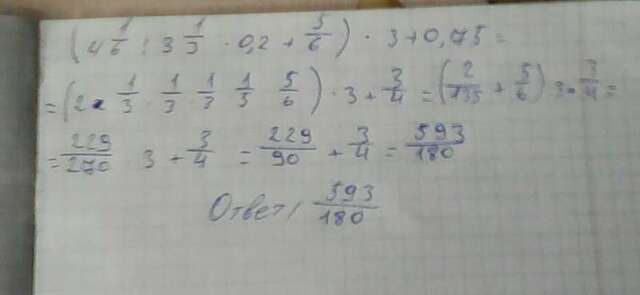 (4 1/6 : 3 1/3 · 0,2 + 5/6) · 3 + 0,75 =
= (2 · 1/3 · 1/3 1/3 1/3 5/6) · 3 + 3/4 = (2/135 + 5/6) 3 + 3/4 =
= 229/270 · 3 + 3/4 = 229/90 + 3/4 = 593/180
Ответ/ 593/180